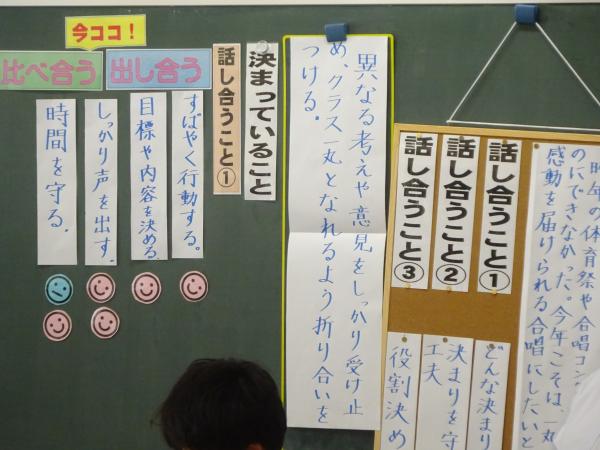 今ココ！
比べ合う
出し合う
話し合うこと①
決まっていること
すばやく行動する。
目標や内容を決める。
しっかり声を出す。
時間を守る。
異なる考えや意見をしっかり受け止
め、クラス一丸となれるよう折り合いを
つける。
話し合うこと①
話し合うこと②
話し合うこと③
どんな決まり
決まりを守
工夫
役割決め
昨年の体育祭や合唱コン
のにできなかった。今年こそは、一丸
感動を届けられる合唱にしたいと